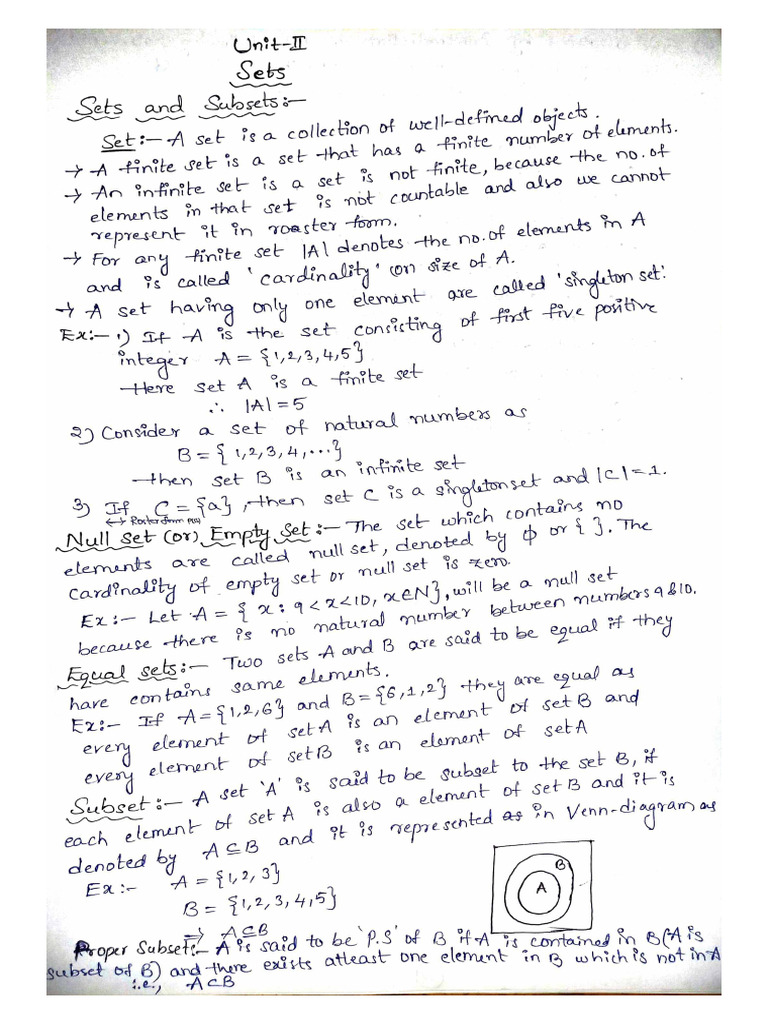 Unit-II
Sets
Sets and Subsets:-
Set:- A set is a collection of well-defined objects.
→ A finite set is a set that has a finite number of elements.
→ An infinite set is a set is not finite, because the no. of
elements in that set is not countable and also we cannot
represent it in roaster form.
→ For any finite set |A| denotes the no. of elements in A
and is called 'cardinality' (or) size of A.
→ A set having only one element are called 'singleton set'.
Ex:- 1) If A is the set consisting of first five positive
integer A = {1,2,3,4,5}
Here set A is a finite set
∴ |A| = 5
2) Consider a set of natural numbers as
B = { 1,2,3,4,...}
then set B is an infinite set
3) If C = {a}, then set C is a singleton set and |C| = 1.
↔ Roster form
Null set (or) Empty Set:- The set which contains no
elements are called null set, denoted by ϕ or { }. The
cardinality of empty set or null set is zero.
Ex:- Let A = { x : 9 < x < 10, x ∈ N}, will be a null set
because there is no natural number between numbers 9 & 10.
Equal sets:- Two sets A and B are said to be equal if they
have contains same elements.
Ex:- If A = {1,2,6} and B = {6,1,2} they are equal as
every element of set A is an element of set B and
every element of set B is an element of set A
Subset:- A set 'A' is said to be subset to the set B, if
each element of set A is also a element of set B and it is
denoted by A ⊆ B and it is represented as in Venn-diagram as
Ex:- A = {1,2,3}
B = {1,2,3,4,5}
B
A
⇒ A ⊆ B
Proper Subset:- A is said to be 'P.S' of B if A is contained in B (A is
subset of B) and there exists atleast one element in B which is not in A
i.e., A ⊂ B